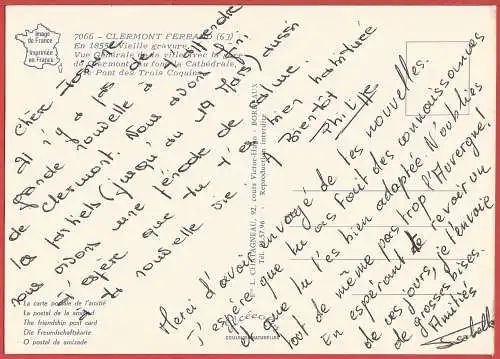 Image
de France
Imprimée
en France
7066 - CLERMONT FERRAND (63)
En 1855. Vieille gravure.
Vue Générale de la ville avec la gare
de Clermont, au fond la Cathédrale,
le Pont des Trois Coquins
Cher
Il n'y a pas de
grande nouvelle à t'attendre
de Clermont. Nous avons fini
les partiels (jusqu'au 19 Mars) aussi
nous avons une période de calme.
J'espère que tu t'es bien habitué
à ta nouvelle vie.
A Bientôt
Philippe
Merci d'avoir envoyé de tes nouvelles.
J'espère que tu as fait des connaissances
et que tu t'es bien adaptée. N'oublies
tout de même pas trop l'Auvergne!
En espérant de te revoir un
de ces jours, je t'envoie
de grosses bises.
Amitiés
Isabelle
L. CHATAGNEAU, 92, cours Victor-Hugo - BORDEAUX
Reproduction interdite
La carte postale de l'amitié
La postal de la amistad
The friendship post card
Die Freundschaftskarte
O postal da amizade
COULEURS NATURELLES